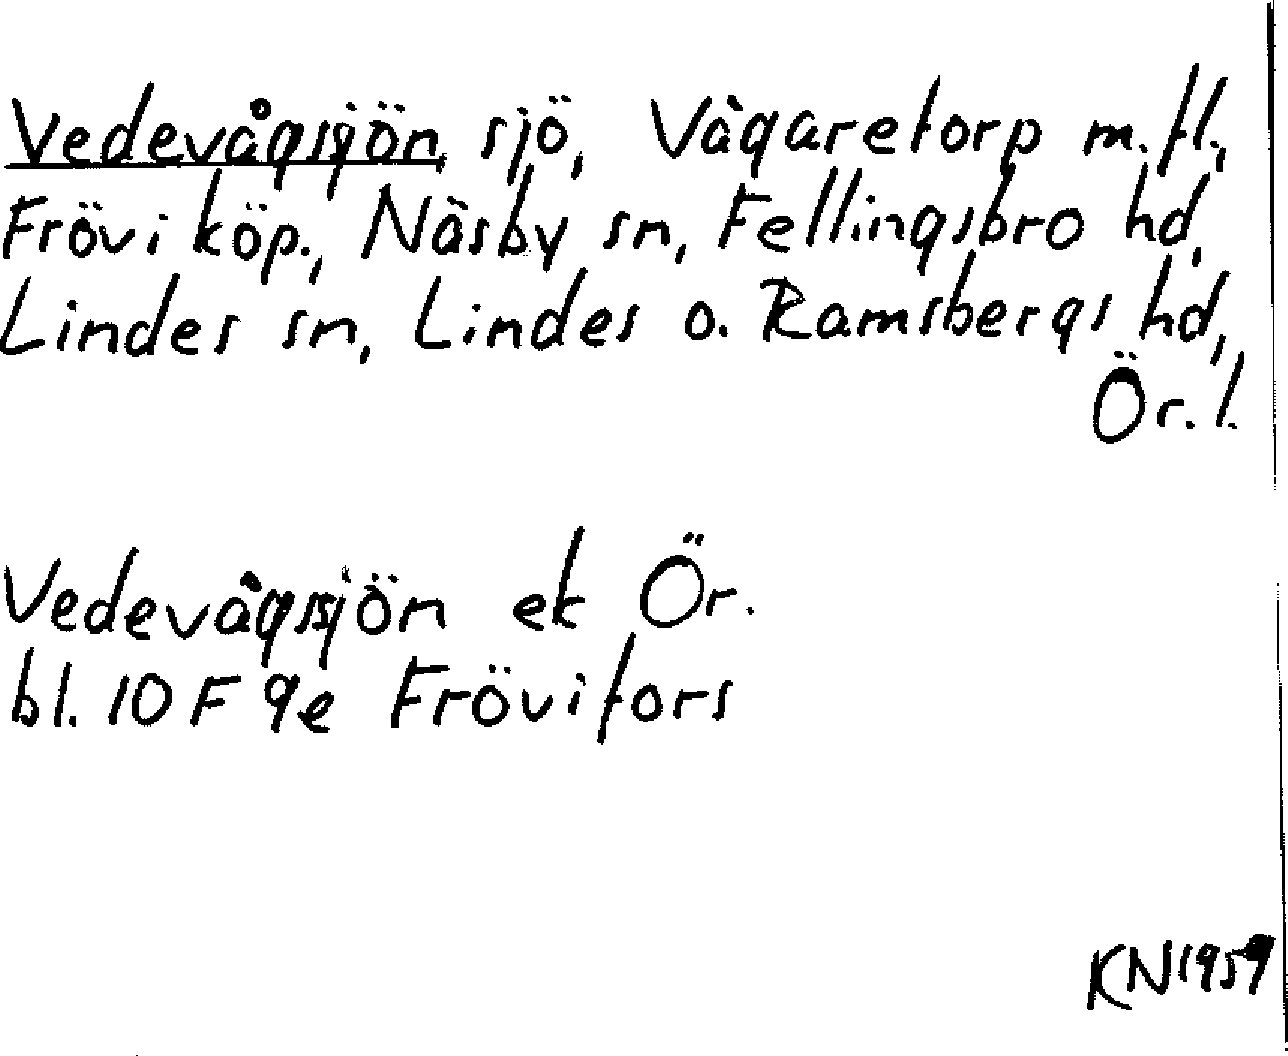 Vedevågsjön, sjö, Vågaretorp m.fl.,
Frövi köp., Näsby sn, Fellingsbro hd,
Lindes sn, Lindes o. Ramsbergs hd,
Ör.l.
Vedevågssjön ek Ör.
bl. 10 F 9e Frövifors
KN 1959